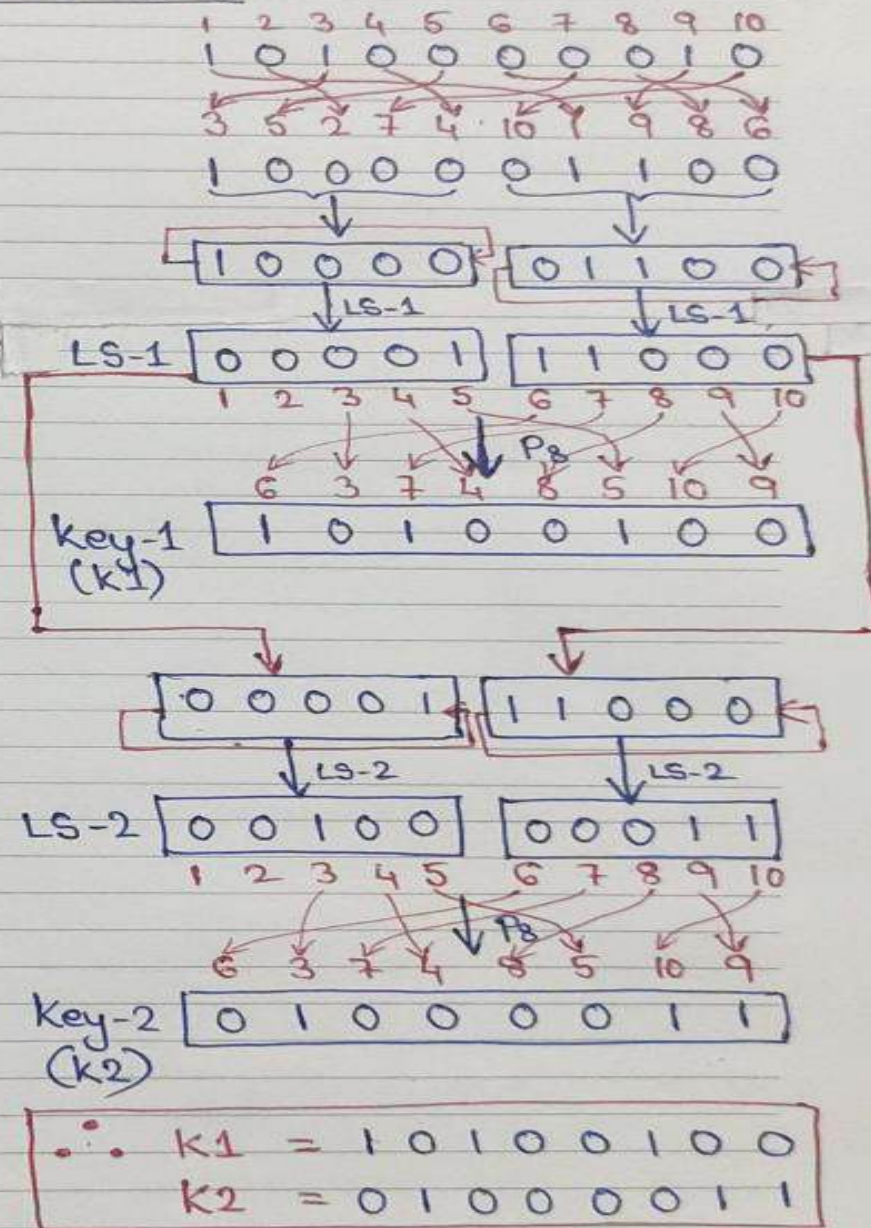 1 2 3 4 5 6 7 8 9 10
1 0 1 0 0 0 0 0 1 0
3 5 2 7 4 10 1 9 8 6
1 0 0 0 0 0 1 1 0 0
1 0 0 0 0 0 1 1 0 0
LS-1 LS-1
LS-1 0 0 0 0 1 1 1 0 0 0
1 2 3 4 5 6 7 8 9 10
P8
6 3 7 4 8 5 10 9
Key-1 1 0 1 0 0 1 0 0
(K1)
0 0 0 0 1 1 1 0 0 0
LS-2 LS-2
LS-2 0 0 1 0 0 0 0 0 1 1
1 2 3 4 5 6 7 8 9 10
P8
6 3 7 4 8 5 10 9
Key-2 0 1 0 0 0 0 1 1
(K2)
∴ K1 = 1 0 1 0 0 1 0 0
K2 = 0 1 0 0 0 0 1 1